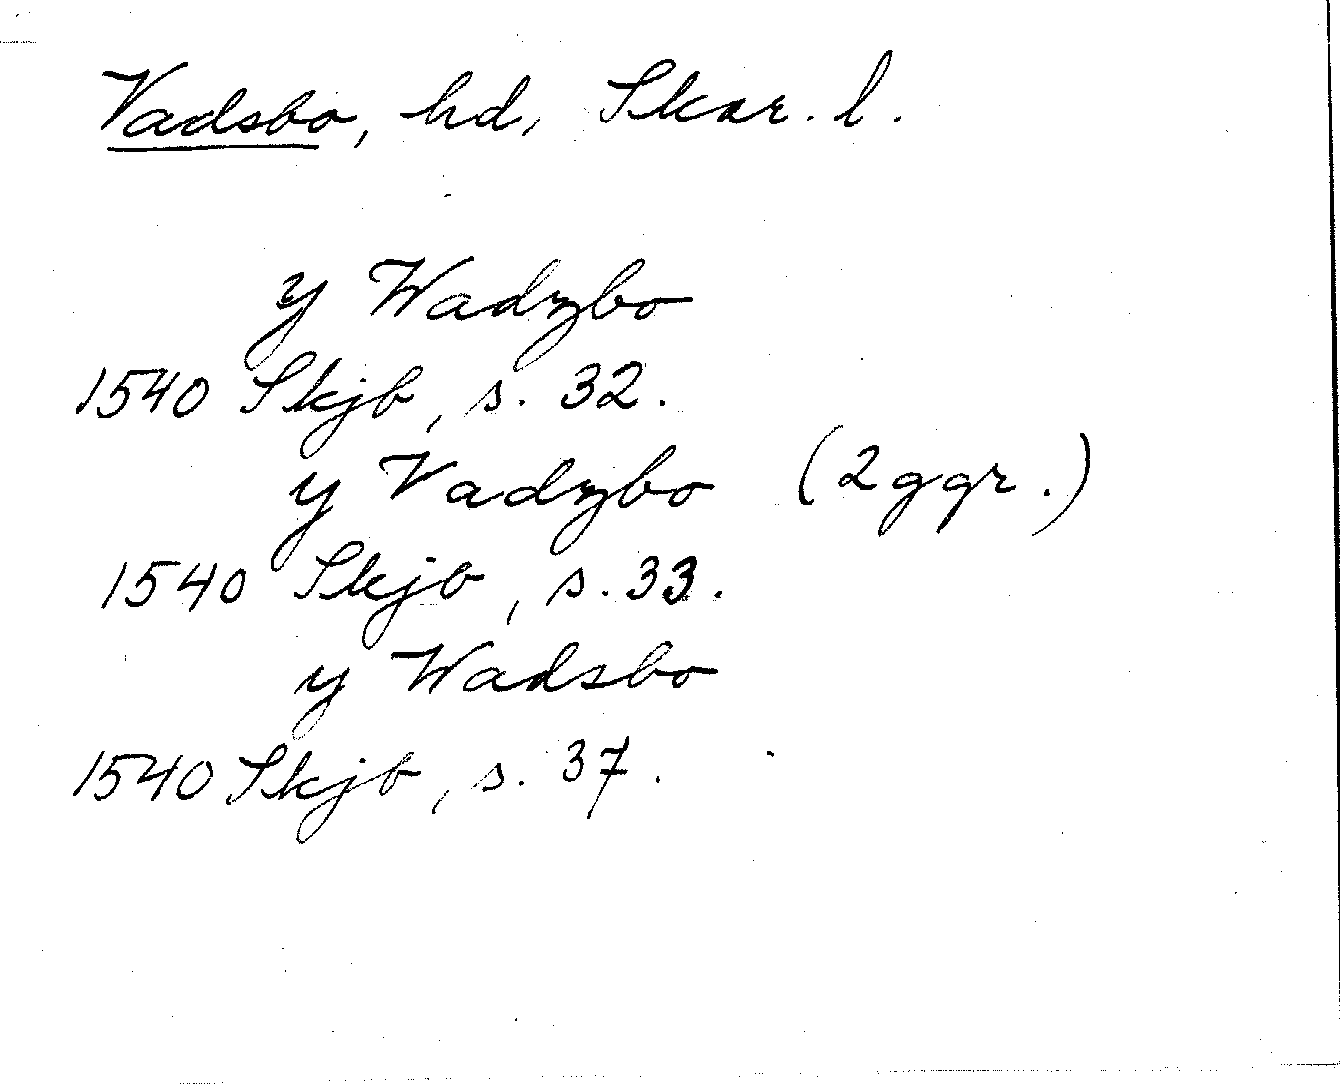 Vadsbo, hd, Skar. l.
y Wadzbo
1540 Skjb, s. 32.
y Vadzbo (2 ggr.)
1540 Skjb, s. 33.
y Wadsbo
1540 Skjb, s. 37.